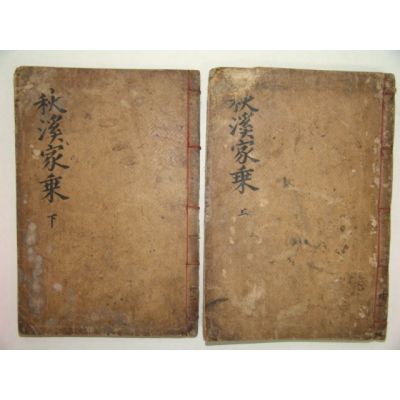 秋溪家乘
下
秋溪家乘
上